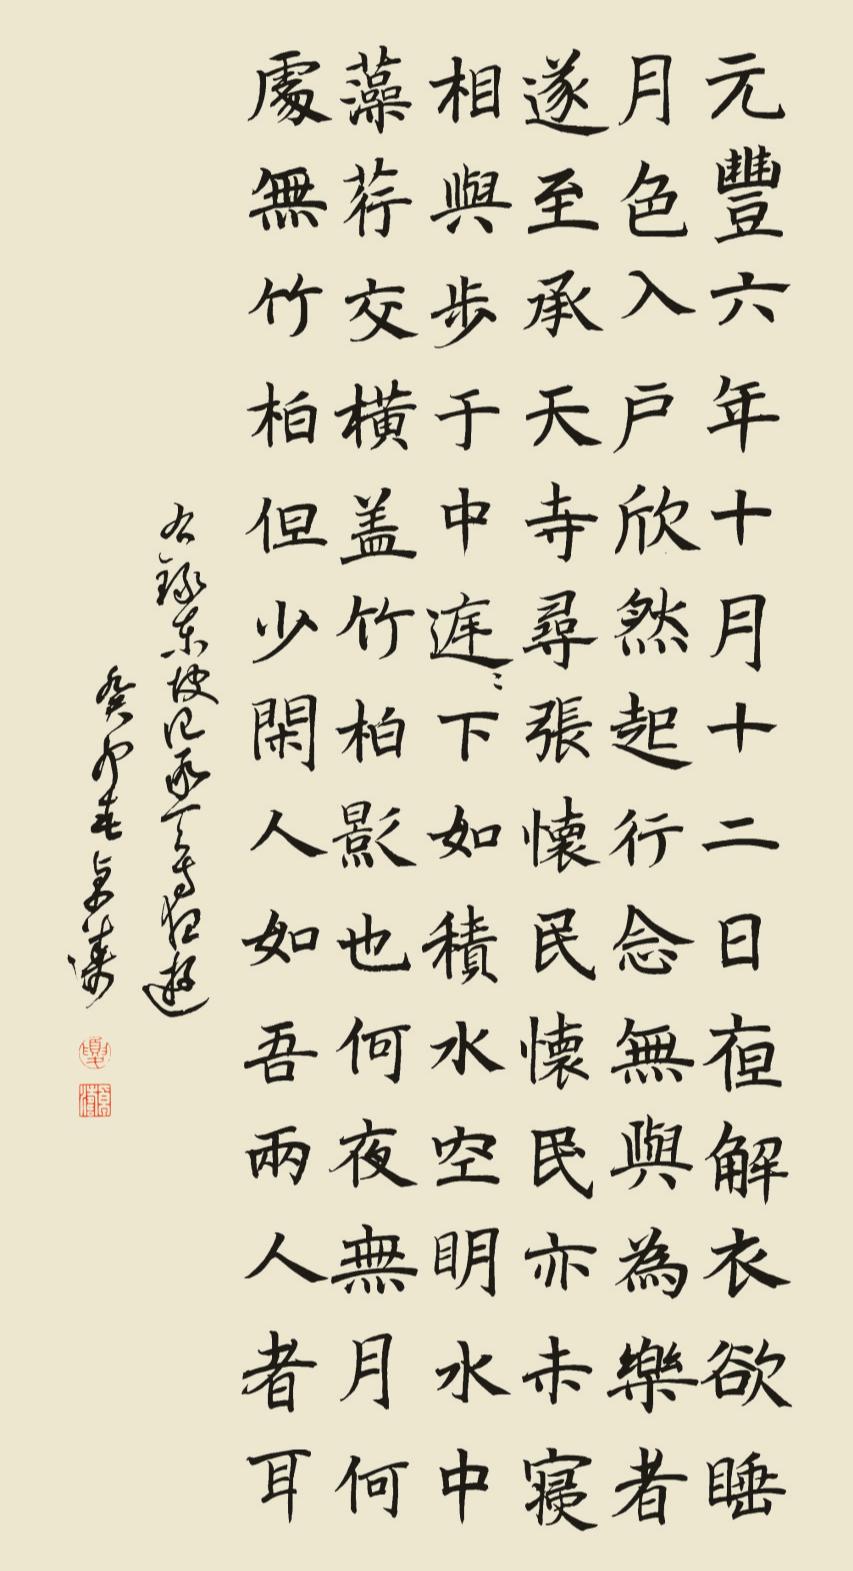 元豐六年十月十二日夜解衣欲睡
月色入戶欣然起行念無與為樂者
遂至承天寺尋張懷民懷民亦未寢
相與步于中庭〻下如積水空明水中
藻荇交橫盖竹柏影也何夜無月何
處無竹柏但少閑人如吾兩人者耳
右錄東坡記承天寺夜遊
癸卯春